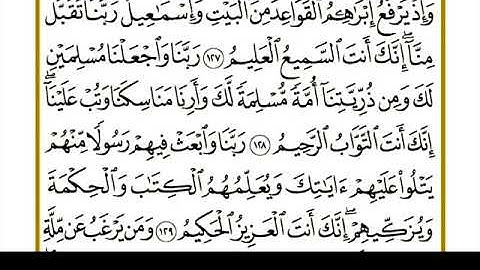 وَإِذْ يَرْفَعُ إِبْرَٰهِـۧمُ ٱلْقَوَاعِدَ مِنَ ٱلْبَيْتِ وَإِسْمَٰعِيلُ رَبَّنَا تَقَبَّلْ
مِنَّآ ۖ إِنَّكَ أَنتَ ٱلسَّمِيعُ ٱلْعَلِيمُ ١٢٧ رَبَّنَا وَٱجْعَلْنَا مُسْلِمَيْنِ
لَكَ وَمِن ذُرِّيَّتِنَآ أُمَّةً مُّسْلِمَةً لَّكَ وَأَرِنَا مَنَاسِكَنَا وَتُبْ عَلَيْنَآ ۖ
إِنَّكَ أَنتَ ٱلتَّوَّابُ ٱلرَّحِيمُ ١٢٨ رَبَّنَا وَٱبْعَثْ فِيهِمْ رَسُولًا مِّنْهُمْ
يَتْلُوا۟ عَلَيْهِمْ ءَايَٰتِكَ وَيُعَلِّمُهُمُ ٱلْكِتَٰبَ وَٱلْحِكْمَةَ
وَيُزَكِّيهِمْ ۚ إِنَّكَ أَنتَ ٱلْعَزِيزُ ٱلْحَكِيمُ ١٢٩ وَمَن يَرْغَبُ عَن مِّلَّةِ